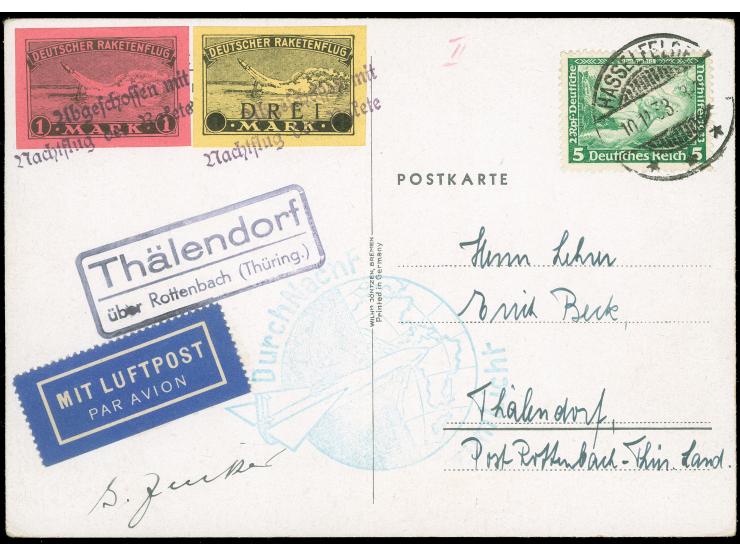 DEUTSCHER RAKETENFLUG
1 MARK 1
Abgeschossen mit
Nachtflug der Rakete
DEUTSCHER RAKETENFLUG
DREI
MARK
mit
Nachtflug der Rakete
II
HASSELFELDE
10.11.33
2.Rpf-Deutsche
Nothilfe-1933
5 Deutsches Reich 5
POSTKARTE
Thälendorf
über Rottenbach (Thüring.)
MIT LUFTPOST
PAR AVION
Durch Nacht
WILH. JÖNTZEN, BREMEN
Printed in Germany
Herrn Lehrer
Erich Beck,
Thälendorf,
Post Rottenbach-Thür. Land.
G. Zucker